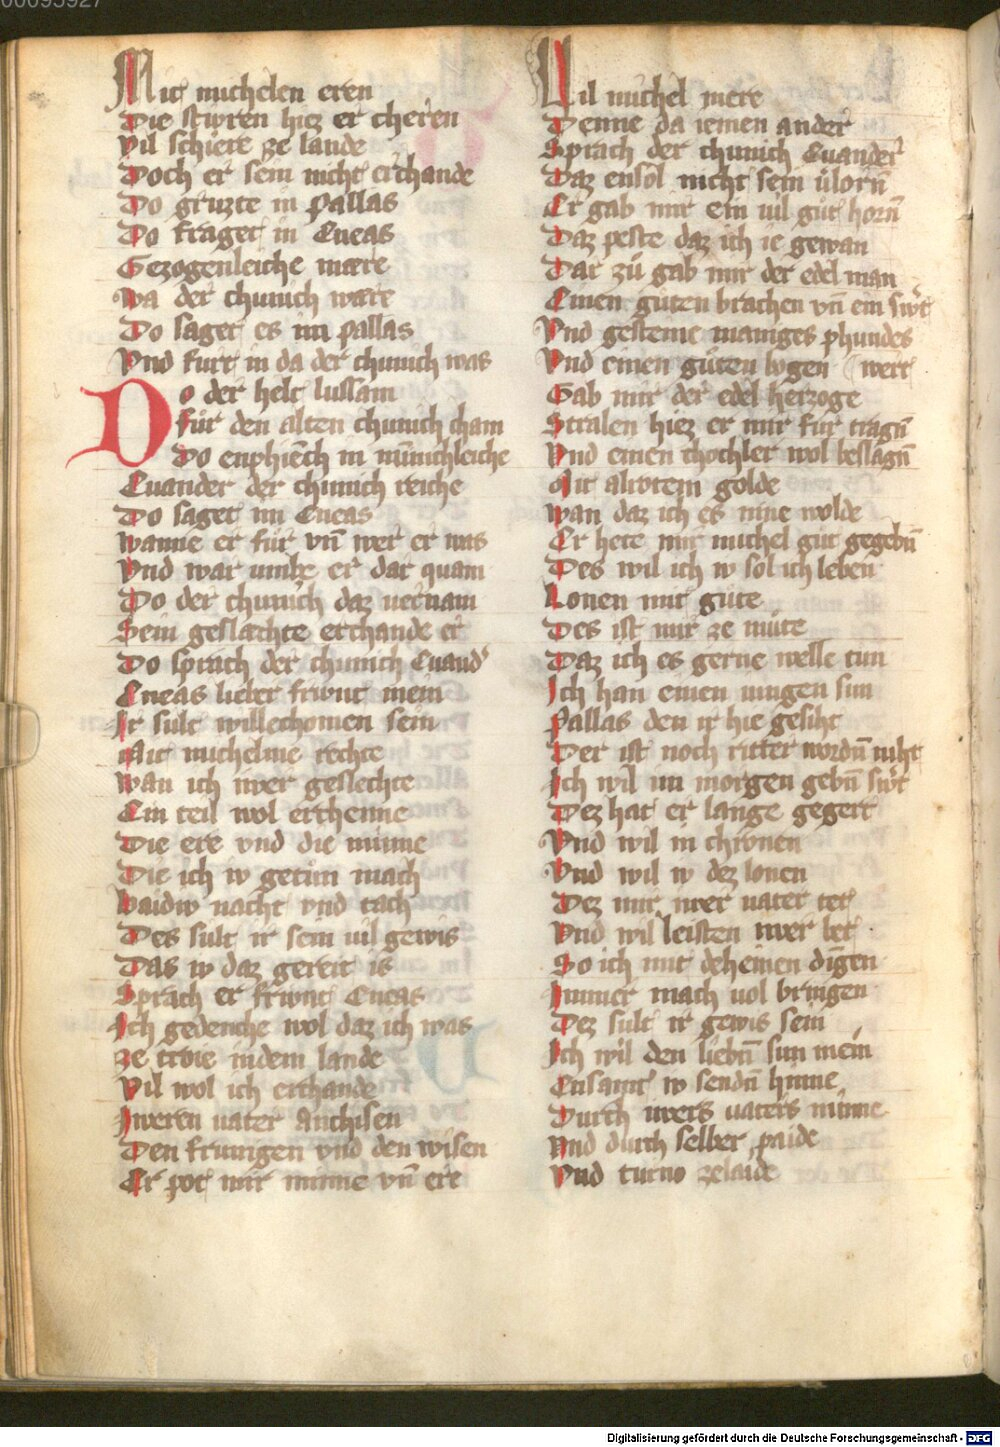 00095927
Mit michelen eren
Die stivren hiez er cheren
Vil schiere ze lande
Doch er sein nicht erchande
Do gruzte in Pallas
Do fraget in Eneas
Gezogenleiche mære
Wa der chunich wære
Do saget es im Pallas
Vnd furt in da der chunich was
Do der helt lussam
Für den alten chunich cham
Do enphiēch in mūnichleiche
Euander der chunich reiche
Do saget im Eneas
Wanne er für vn̄ wer er was
Vnd war umbe er dar quam
Do der chunich daz uernam
Sein geslæchte erchande er
Do sprach der chunich Euand'
Eneas lieber frivnt mein
Ir sult willechomen sein
Mit michelme rechte
Wan ich iwer geslechte
Ein teil wol erchenne
Die ere vnd die minne
Die ich iv getün mach
Baidiv nacht vnd tach
Des sult ir sein uil gewis
Das iv daz gereit is
Sprach er frivnt Eneas
Ich gedenche wol daz ich was
Ze troie indem lande
Vil wol ich erchande
Iweren uater Anchisen
Den frumigen vnd den wisen
Er pot mir minne vn̄ ere
Vil michel mere
Denne da iemen ander
Sprach der chunich Euander
Daz ensol nicht sein ūlorn̄
Er gab mir ein uil güt horn̄
Daz peste daz ich ie gewan
Dar zü gab mir der edel man
Einen güten brachen vn̄ ein swt
Vnd gesteine maniges phundes
Vnd einen güten bogen wert
Gab mir der edel herzoge
Stralen hiez er mir für tragn̄
Vnd einen chochler wol beslagn̄
Mit alrotem golde
Wan daz ich es nine wolde
Er hete mir michel güt gegebn̄
Des wil ich iv sol ich leben
Lonen mit güte
Des ist mir ze müte
Daz ich es gerne welle tün
Ich han einen iungen sun
Pallas den ir hie gesiht
Der ist noch ritter wordn̄ niht
Ich wil im morgen gebn̄ swt
Dez hat er lange gegert
Vnd wil in chronen
Vnd wil iv dez lonen
Dez mir iwer uater tet
Vnd wil leisten iwer bet
So ich mit deheinen dingen
Immer mach uol bringen
Dez sult ir gewis sein
Ich wil den liebn̄ sun mein
Ensamt iv sendn̄ hinne
Durch iwers uaters minne
Vnd durch selber paide
Vnd turno zelaide
Digitalisierung gefördert durch die Deutsche Forschungsgemeinschaft - DFG